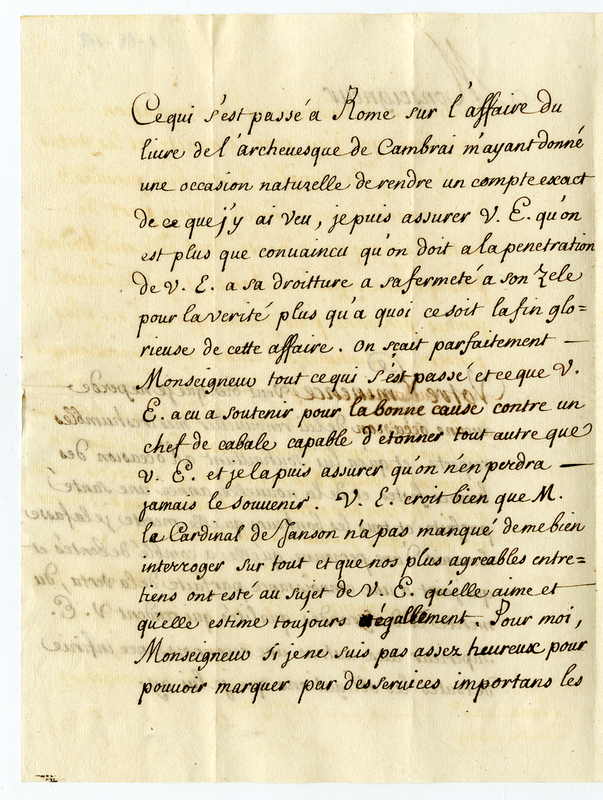 Ce qui s'est passé a Rome sur l'affaire du
livre de l'archevesque de Cambrai m'ayant donné
une occasion naturelle de rendre un compte exact
de ce que j'y ai veu, je puis assurer V. E. qu'on
est plus que convaincu qu'on doit a la penetration
de V. E. a sa droitture a sa fermeté a son zele
pour la verité plus qu'a quoi ce soit la fin glo=
rieuse de cette affaire. On sçait parfaitement —
Monseigneur tout ce qui s'est passé et ce que V.
E. a eu a soutenir pour la bonne cause contre un
chef de cabale capable d'étonner tout autre que
V. E. et je la puis assurer qu'on n'en perdra —
jamais le souvenir. V. E. croit bien que M.
le Cardinal de Janson n'a pas manqué de me bien
interroger sur tout et que nos plus agreables entre=
tiens ont esté au sujet de V. E. qu'elle aime et —
qu'elle estime toujours égallement. Pour moi,
Monseigneur si je ne suis pas assez heureux pour
pouvoir marquer par des services importans les